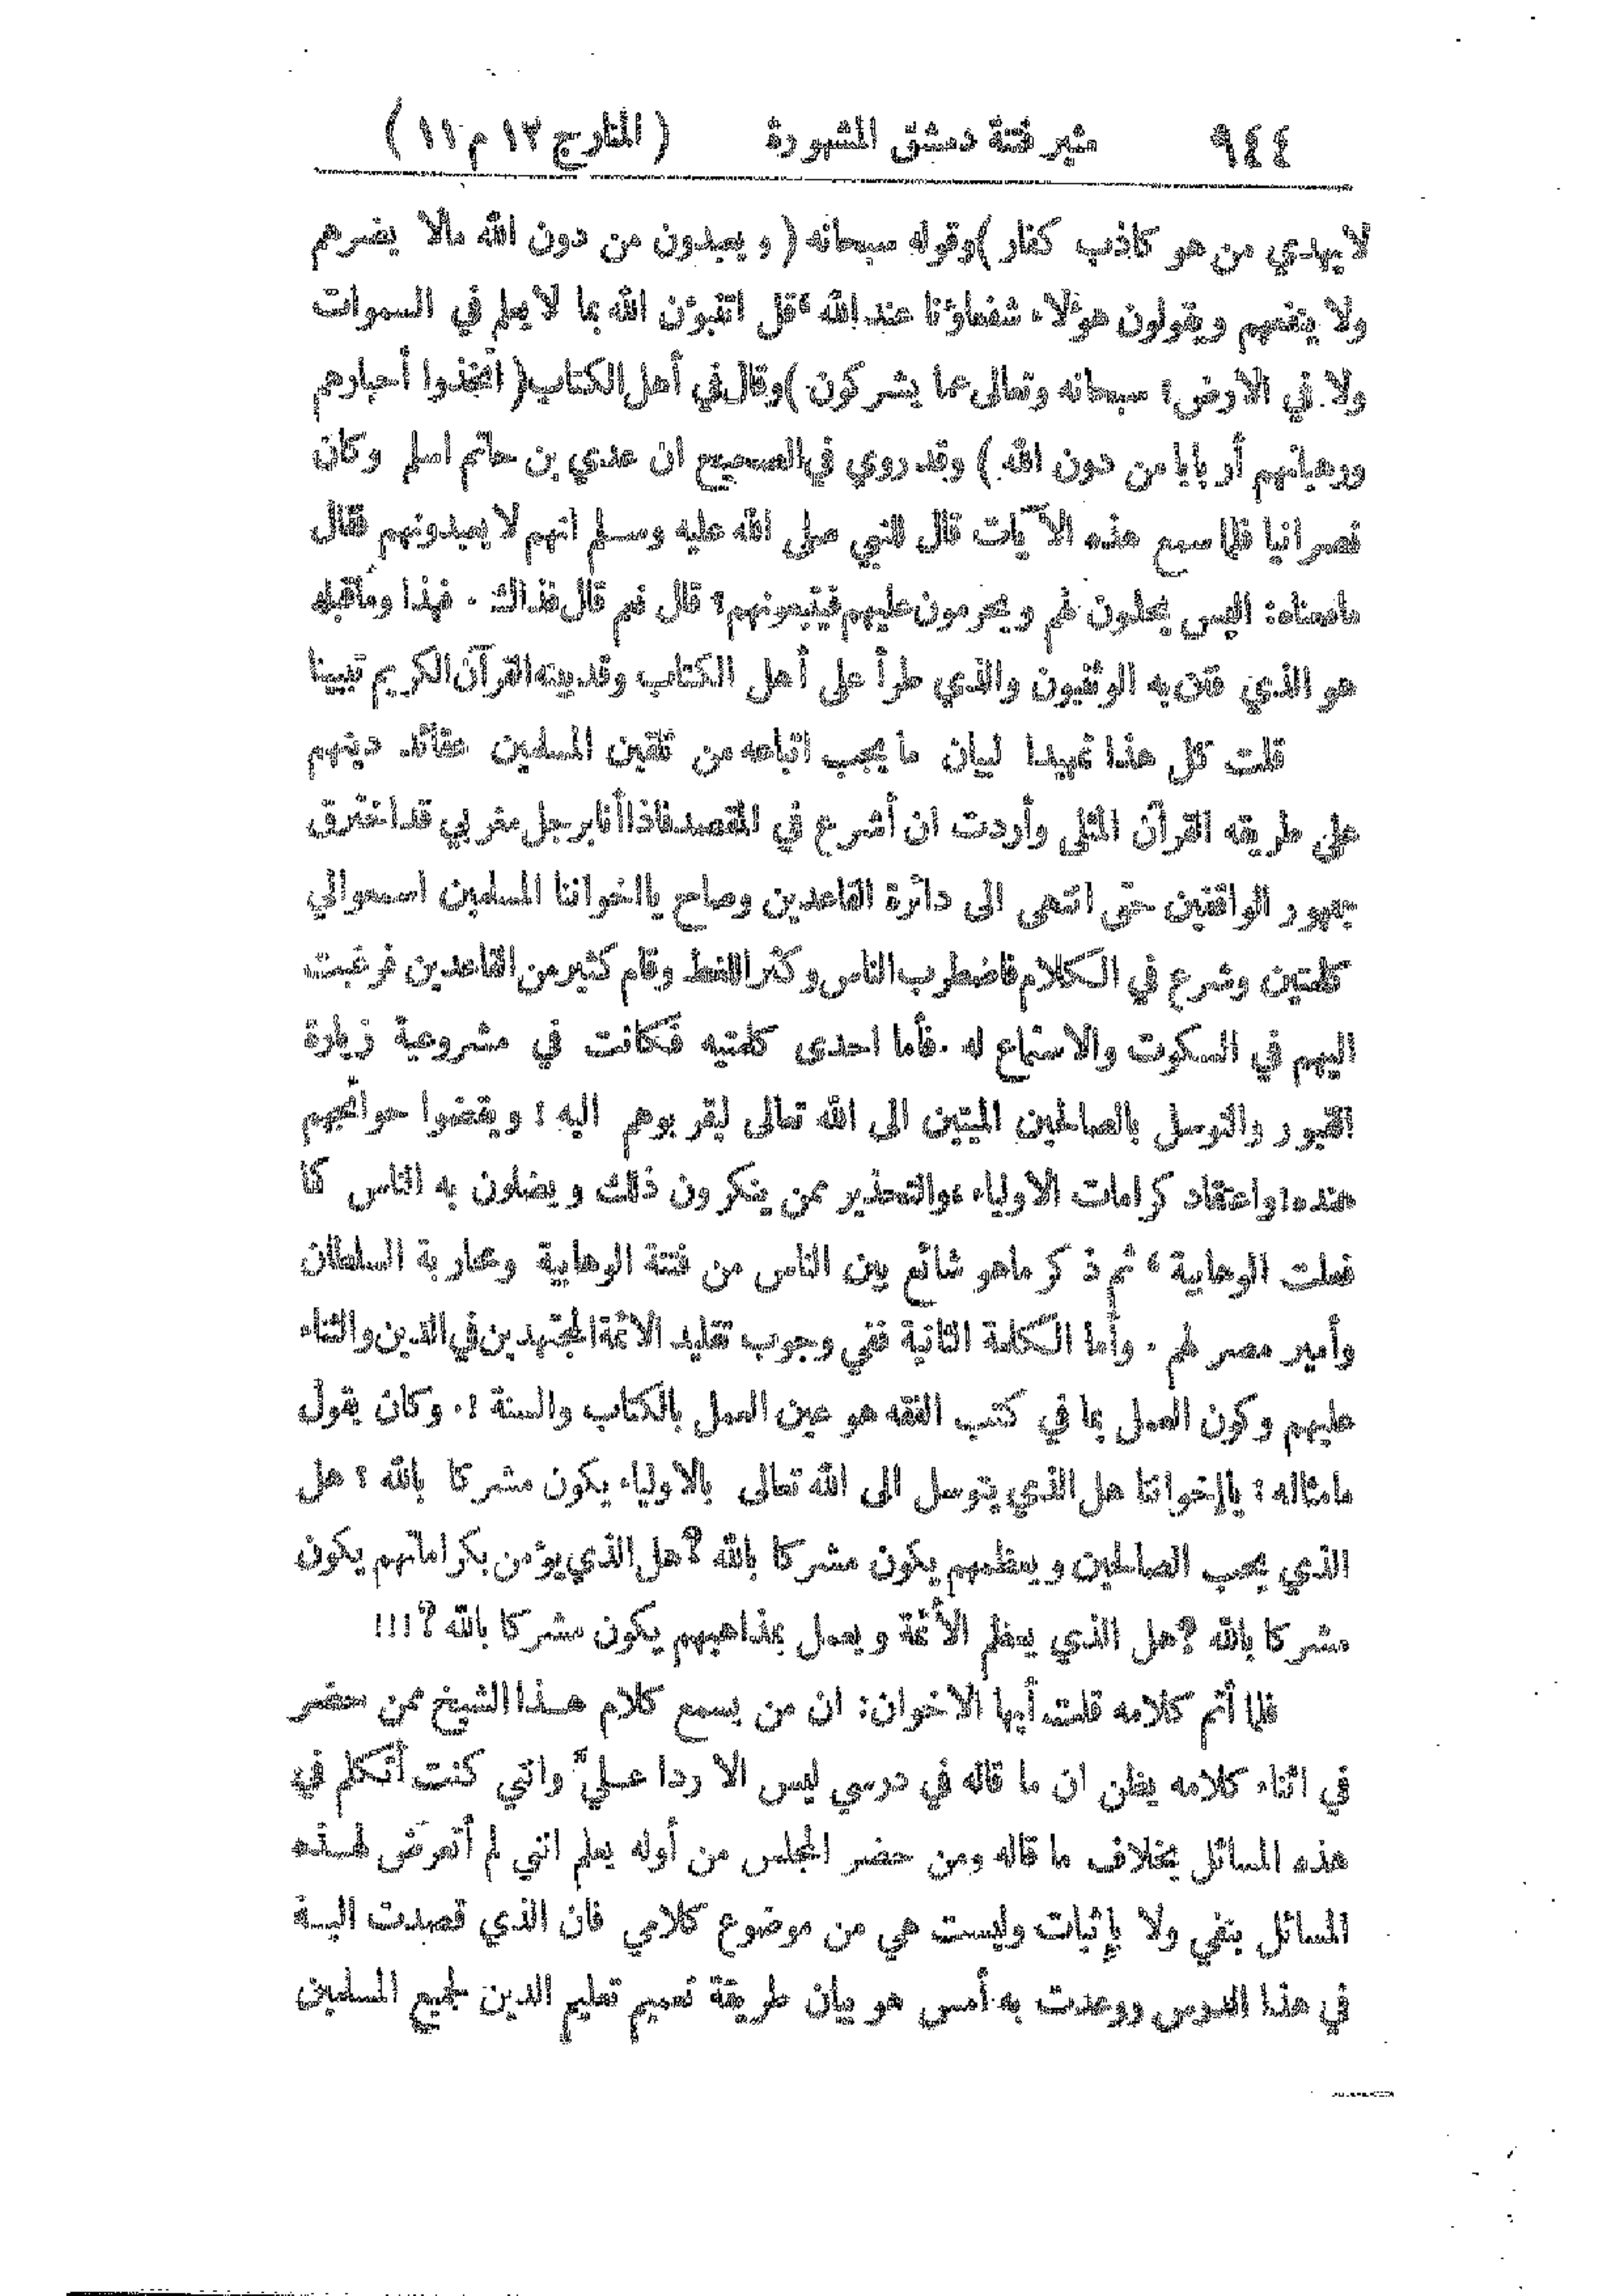 ٩٤٤ مثير فتنة دمشق المشهورة (المنارج ١٢ م ١١)
لا يهدي من هو كاذب كفار) وقوله سبحانه (ويعبدون من دون الله مالا يضرهم
ولا ينفعهم ويقولون هؤلاء شفعاؤنا عند الله، قل اتنبؤن الله بما لا يعلم في السموات
ولا في الأرض؛ سبحانه وتعالى عما يشركون) وقال في أهل الكتاب (اتخذوا أحبارهم
ورهبانهم أربابا من دون الله) وقد روي في الصحيح ان عدي بن حاتم اسلم وكان
نصرانيا فلما سمع هذه الآيات قال للنبي صلى الله عليه وسلم انهم لا يعبدونهم فقال
مامعناه: اليس يحلون لهم ويحرمون عليهم فيتبعونهم؟ قال نعم قال فذاك. فهذا وماقبله
هو الذي فتن به الوثنيون والذي طرأ على أهل الكتاب وقد بينه القرآن الكريم تبيينا
قلت كل هذا تمهيدا لبيان ما يجب اتباعه من تلقين المسلمين عقائد دينهم
على طريقه القرآن المثلى وأردت ان أشرع في المقصد فاذا أنا برجل مغربي قد اخترق
جمهور الواقفين حتى انتهى الى دائرة القاعدين وصاح يااخواننا المسلمين اسمعوا لي
كلمتين وشرع في الكلام فاضطرب الناس وكثر اللغط وقام كثير من القاعدين فرغبت
اليهم في السكوت والاستماع له. فأما احدى كلمتيه فكانت في مشروعية زيارة
القبور والتوسل بالصالحين الميتين الى الله تعالى ليقربوهم اليه؛ ويقضوا حوائجهم
عنده؛ واعتقاد كرامات الاولياء، والتحذير ممن ينكرون ذلك ويضلون به الناس كما
فعلت الوهابية، ثم ذكر ماهو شائع بين الناس من فتنة الوهابية ومحاربة السلطان
وأمير مصر لهم. وأما الكلمة الثانية ففي وجوب تقليد الائمة المجتهدين في الدين والثناء
عليهم وكون العمل بما في كتب الفقه هو عين العمل بالكتاب والسنة؛. وكان يقول
مامثاله: ياإخواننا هل الذي يتوسل الى الله تعالى بالاولياء يكون مشركا بالله؟ هل
الذي يحب الصالحين ويعظمهم يكون مشركا بالله؟ هل الذي يؤمن بكراماتهم يكون
مشركا بالله؟ هل الذي يعظم الأئمة ويعمل بمذاهبهم يكون مشركا بالله؟!!!
فلما أتم كلامه قلت أيها الاخوان: ان من يسمع كلام هذا الشيخ ممن حضر
في اثناء كلامه يظن ان ما قاله في درسي ليس الا ردا عليّ واني كنت أتكلم في
هذه المسائل بخلاف ما قاله ومن حضر المجلس من أوله يعلم اني لم أتعرض لهذه
المسائل بنفي ولا بإثبات وليست هي من موضوع كلامي فان الذي قصدت اليه
في هذا الدرس ووعدت به أمس هو بيان طريقة تعميم تعليم الدين لجميع المسلمين